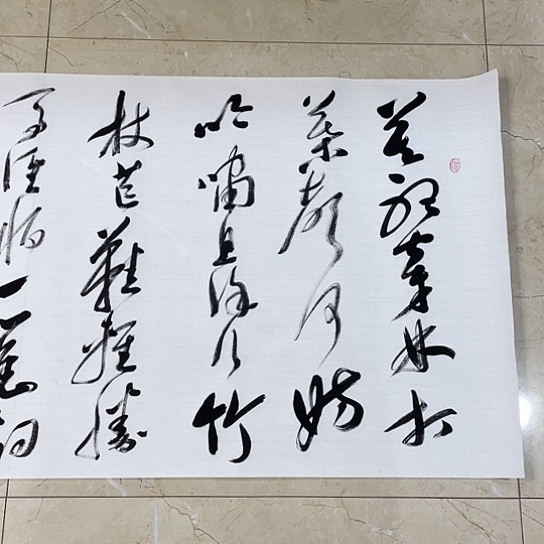 莫听穿林打
叶声何妨
吟啸且徐行竹
杖芒鞋轻胜
马谁怕一蓑